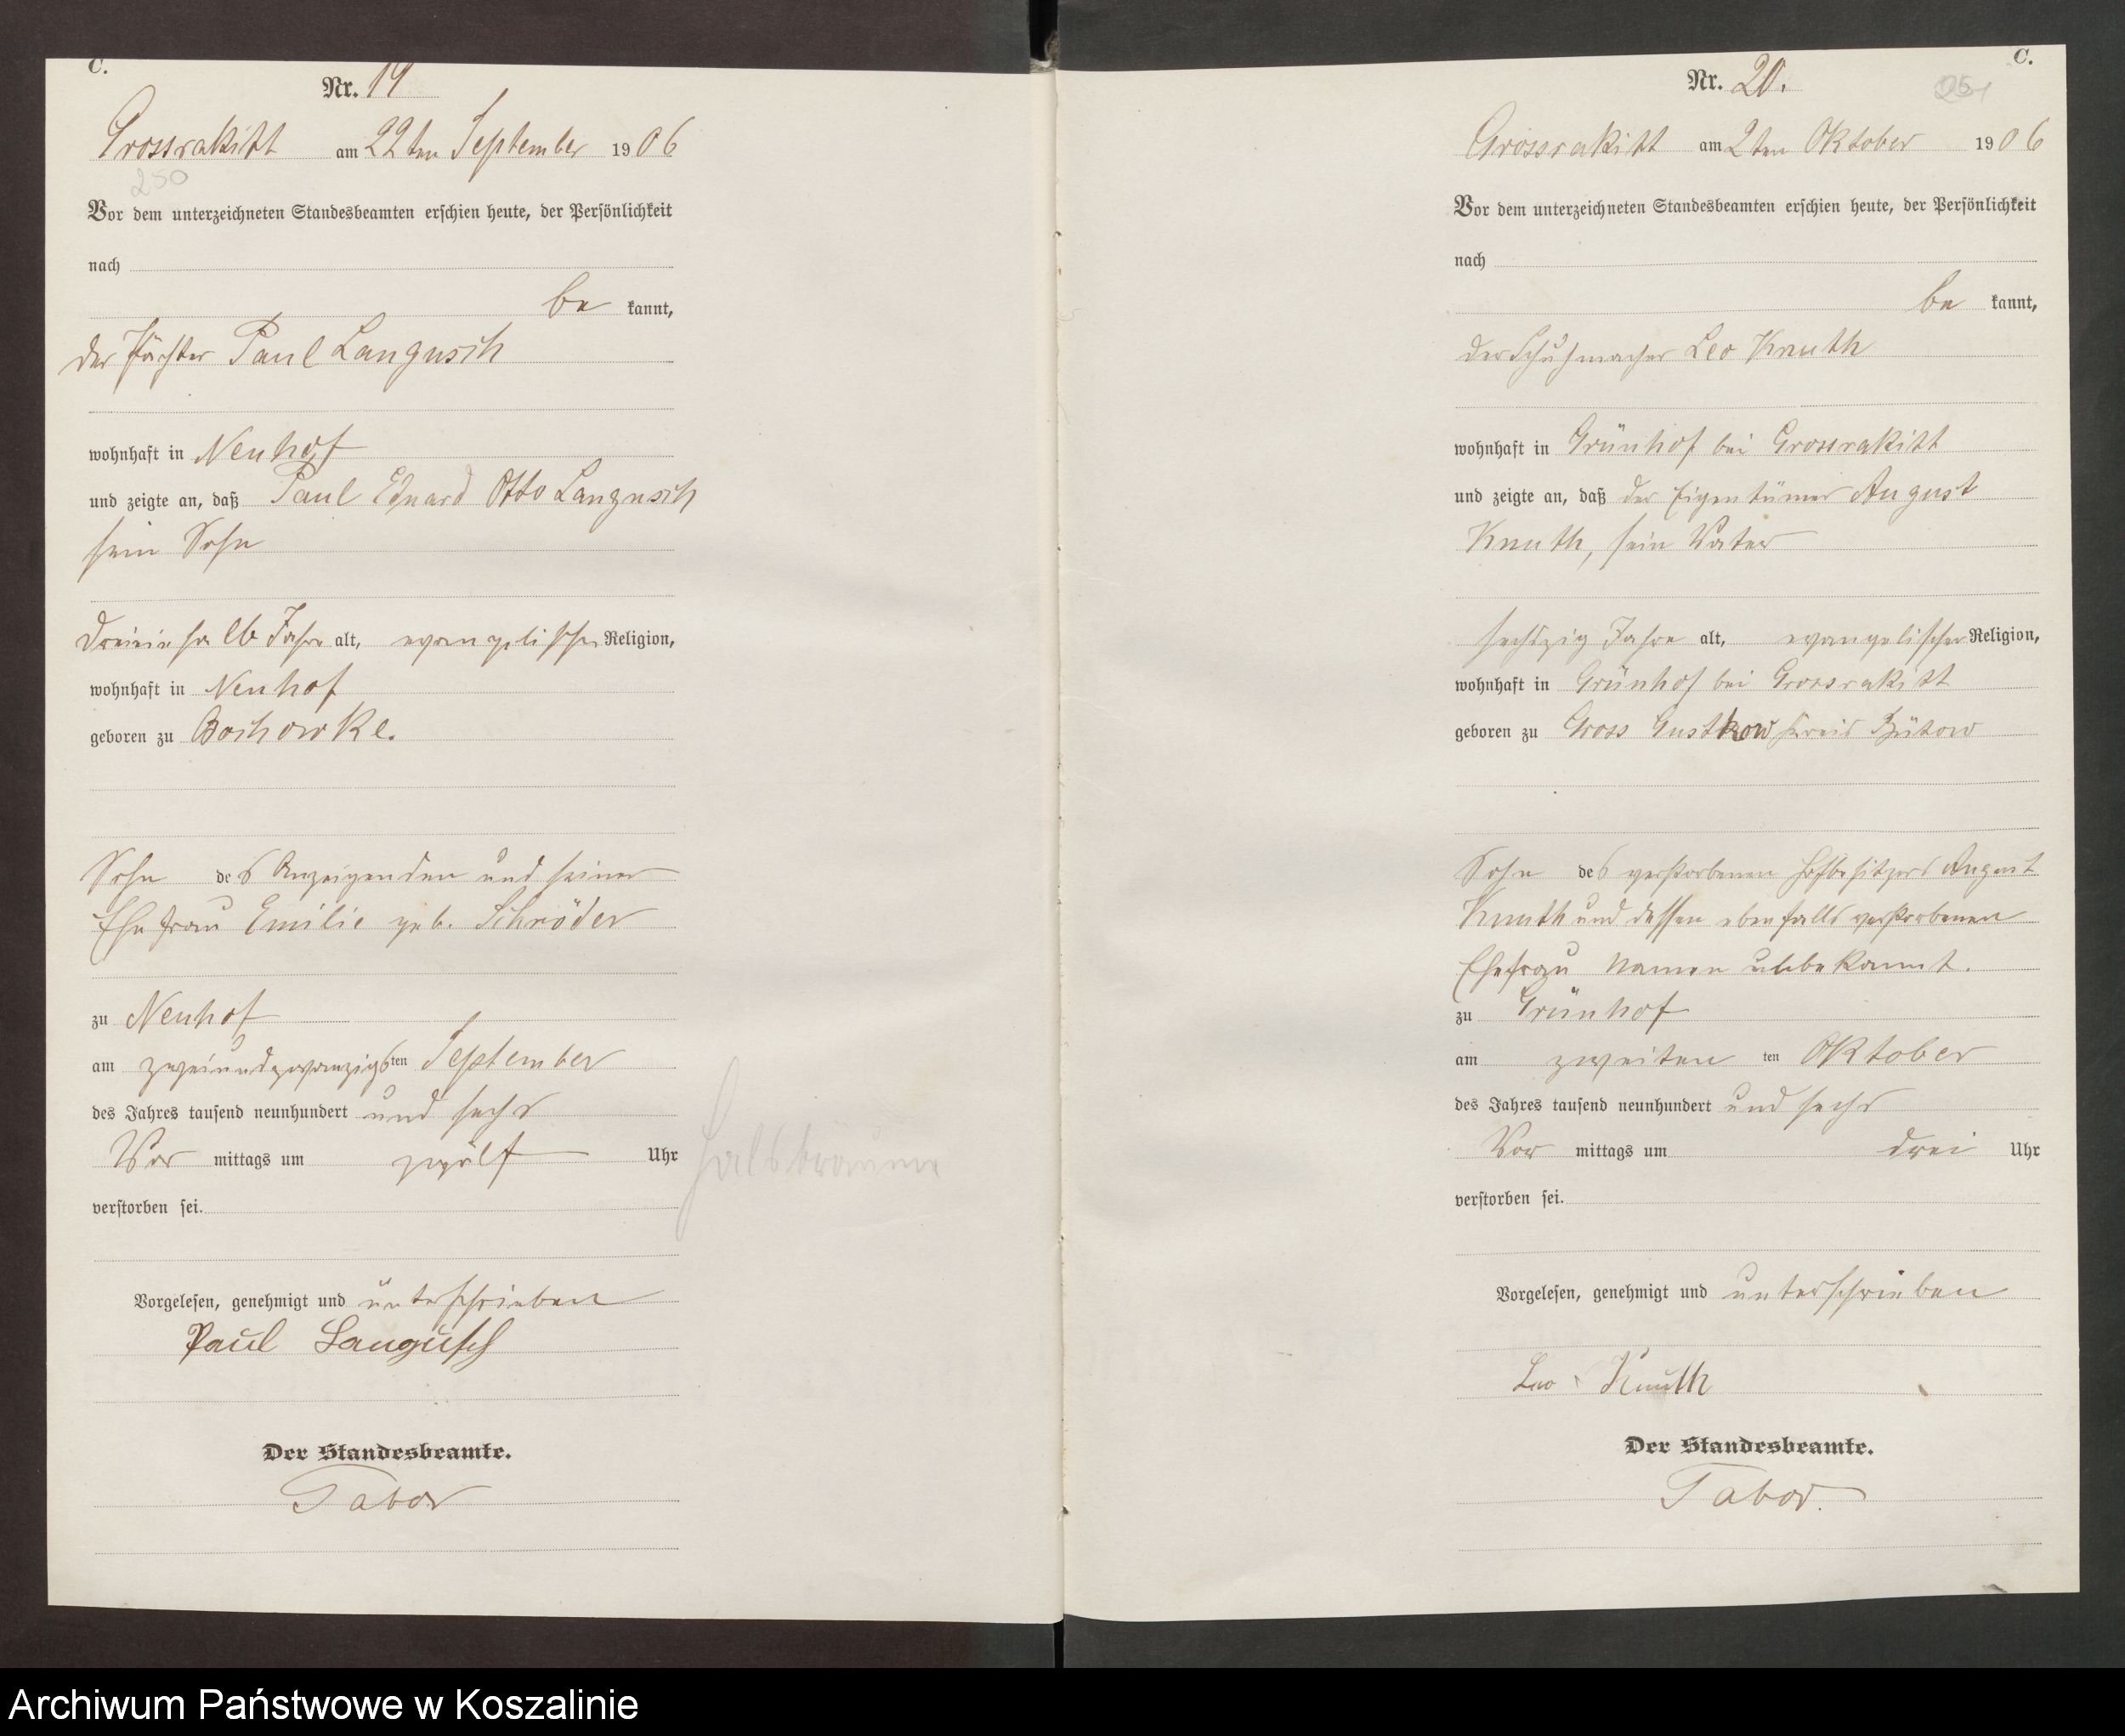 C.
Nr. 19
Grossrakitt am 22ten September 1906
250
Vor dem unterzeichneten Standesbeamten erschien heute, der Persönlichkeit
nach
be kannt,
der Pächter Paul Langusch
wohnhaft in Neuhof
und zeigte an, daß Paul Eduard Otto Langusch
sein Sohn
dreieinhalb Jahre alt, evangelischer Religion,
wohnhaft in Neuhof
geboren zu Bochowke.
Sohn des Anzeigenden und seiner
Ehefrau Emilie geb. Schröder
zu Neuhof
am zweiundzwanzigsten September
des Jahres tausend neunhundert und sechs
Vor mittags um zwölf Uhr
Halsbräune
verstorben sei.
Vorgelesen, genehmigt und unterschrieben
Paul Langusch
Der Standesbeamte.
Tabor
C.
Nr. 20.
251
Grossrakitt am 2ten Oktober 1906
Vor dem unterzeichneten Standesbeamten erschien heute, der Persönlichkeit
nach
be kannt,
der Schuhmacher Leo Knuth
wohnhaft in Grünhof bei Grossrakitt
und zeigte an, daß der Eigentümer August
Knuth, sein Vater
sechszig Jahre alt, evangelischer Religion,
wohnhaft in Grünhof bei Grossrakitt
geboren zu Gross Gustkow Kreis Bütow
Sohn des verstorbenen Hofbesitzers August
Knuth und dessen ebenfalls verstorbenen
Ehefrau Namen unbekannt.
zu Grünhof
am zweiten ten Oktober
des Jahres tausend neunhundert und sechs
Vor mittags um drei Uhr
verstorben sei.
Vorgelesen, genehmigt und unterschrieben
Leo Knuth
Der Standesbeamte.
Tabor.
Archiwum Państwowe w Koszalinie